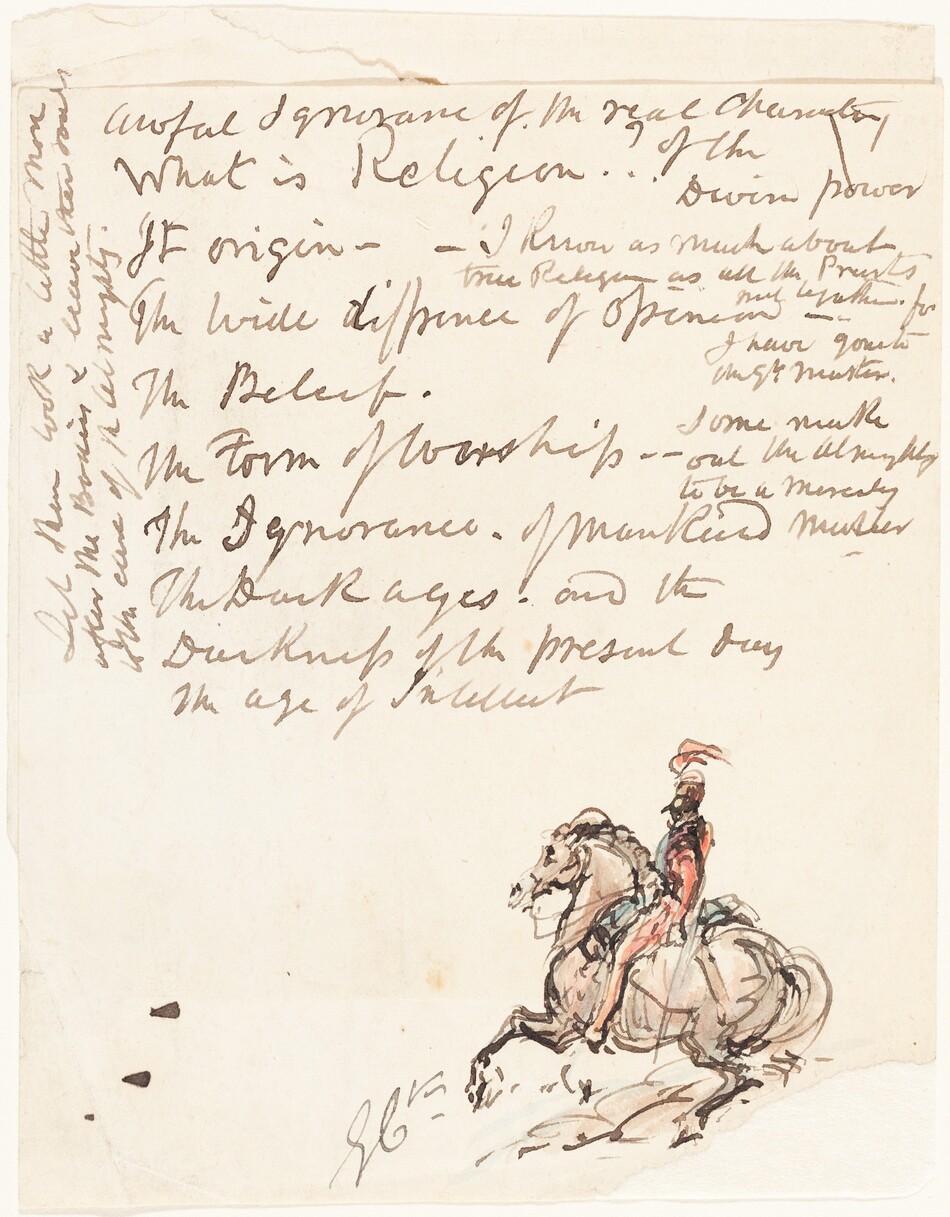 awful Ignorance of the real Character,
of the
Divine power
What is Religion...?
It origin -
- I know as much about
true Religion as all the Priests
put together. for
I have gone to
the Gt Master.
The wide diffrence of Opinion
The Beleif.
The Form of Worship --
Some make
out the Almighty
to be a Mercely
Master
The Ignorance. of Mankind
The Dark ages. and the
Darkness of the present day
The age of Intellect
Let them look a little more
after the Bodies & leave their souls
to the care of the Almighty.